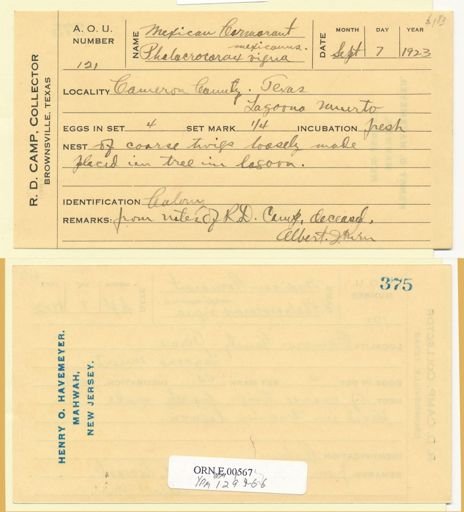 R. D. CAMP, COLLECTOR
BROWNSVILLE, TEXAS
A. O. U.
NUMBER
121
NAME
Mexican Cormorant
mexicanus.
Phalacrocorax vigua
DATE
MONTH DAY YEAR
Sept 7 1923
LOCALITY Cameron County. Texas
Lagoona Muerto
EGGS IN SET 4 SET MARK 1/4 INCUBATION fresh
NEST of coarse twigs loosely made
placed in tree in lagoon.
IDENTIFICATION Colony
REMARKS: from notes of R.D. Camp, deceased.
Albert J. Kirn
375
HENRY O. HAVEMEYER.
MAHWAH,
NEW JERSEY.
ORN.E.00567
YPM